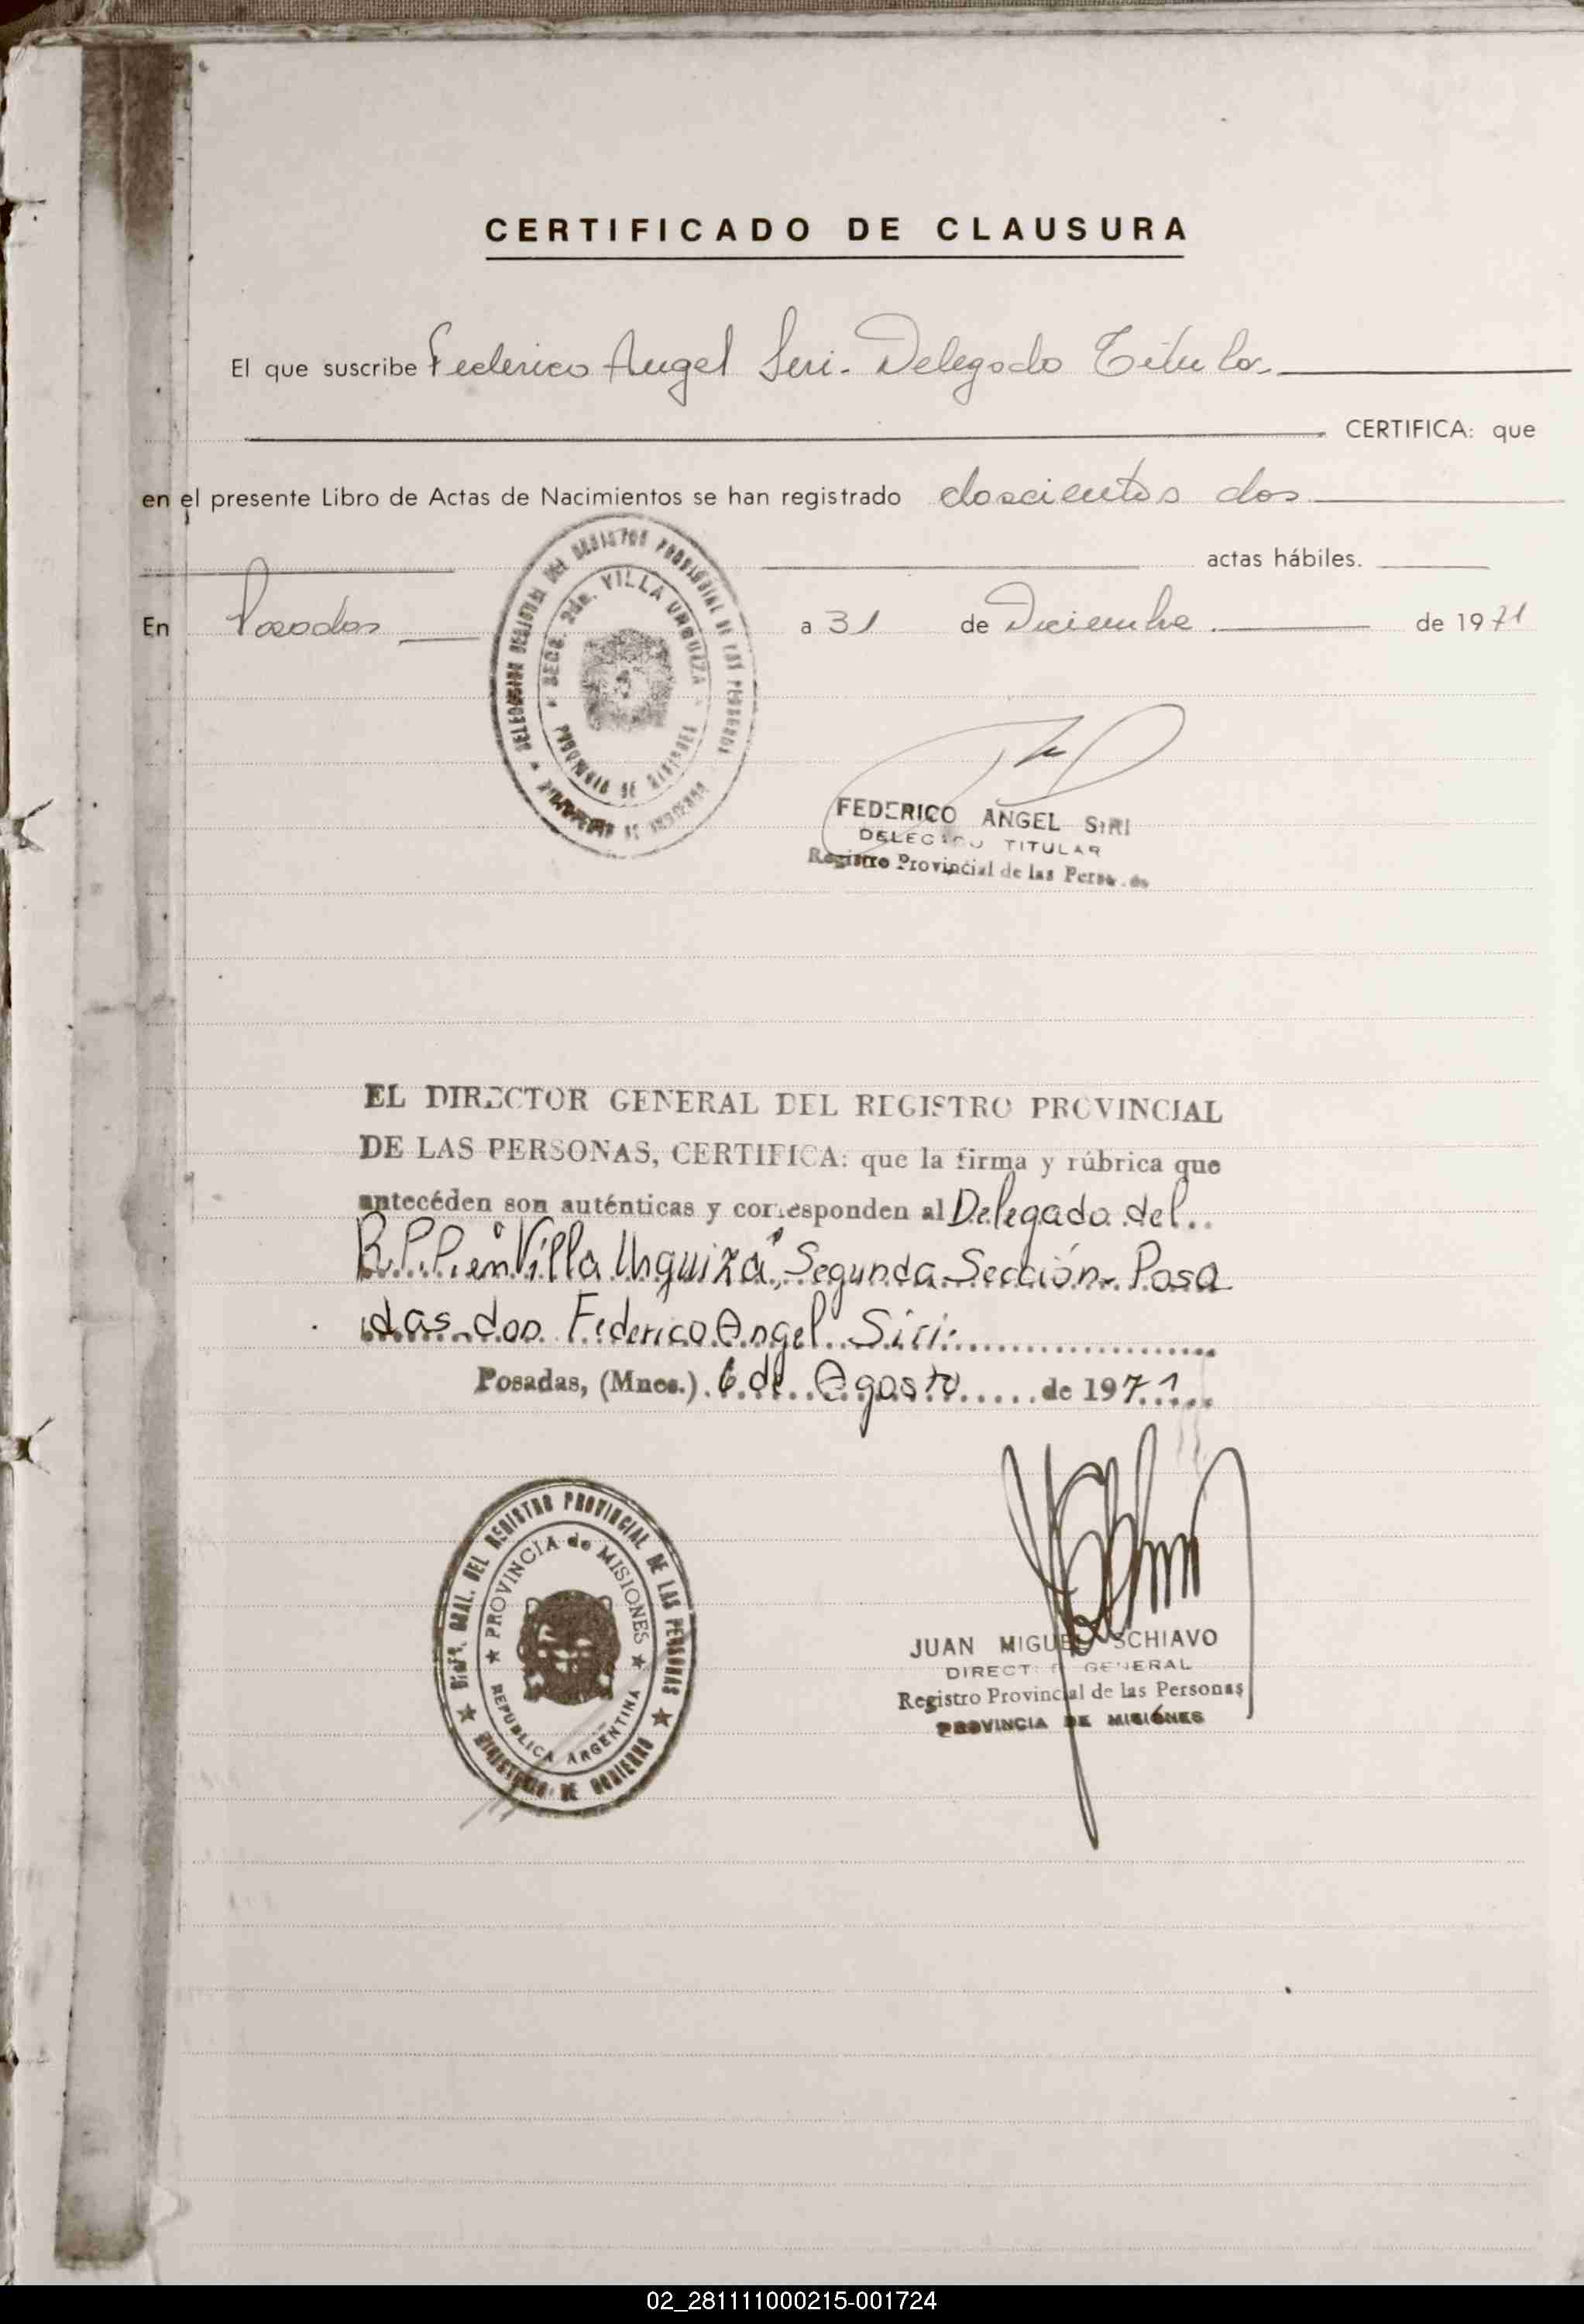 CERTIFICADO DE CLAUSURA
El que suscribe Federico Angel Siri. Delegado Titular
CERTIFICA: que
en el presente Libro de Actas de Nacimientos se han registrado doscientos dos
actas hábiles.
En Posadas a 31 de Diciembre de 1971
DELEGACION DEL REGISTRO PROVINCIAL DE LAS PERSONAS
SECC. 2da. VILLA URQUIZA
PROVINCIA DE MISIONES
FEDERICO ANGEL SIRI
DELEGADO TITULAR
Registro Provincial de las Personas
EL DIRECTOR GENERAL DEL REGISTRO PROVINCIAL
DE LAS PERSONAS, CERTIFICA: que la firma y rúbrica que
antecéden son auténticas y corresponden al Delegado del
R.P.P. en "Villa Urquiza", Segunda Sección- Posa
das- don Federico Angel Siri:
Posadas, (Mnes.) 6 de Agosto de 1971
DIRE. GRAL. DEL REGISTRO PROVINCIAL DE LAS PERSONAS
PROVINCIA de MISIONES
REPUBLICA ARGENTINA
MINISTERIO DE GOBIERNO
JUAN MIGUEL SCHIAVO
DIRECTOR GENERAL
Registro Provincial de las Personas
PROVINCIA DE MISIONES
02_281111000215-001724